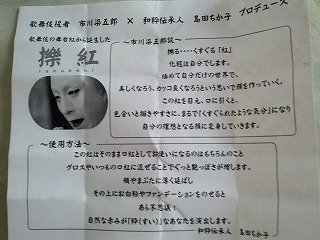 歌舞伎役者　市川染五郎　×　和粋伝承人　島田ちか子　プロデュース
歌舞伎の舞台紅から誕生した
擽紅
～市川染五郎談～
擽る・・・・くすぐる「紅」
化粧は自分でします。
極めて自分だけの世界で、
美しくなろう、カッコ良くなろうという思いで顔を作っていく。
この紅を目え、口に引くと、
色合いと描きやすさに、まるで「くすぐられたような気分」になり
自分の理想となる顔に変身していきます。
～使用方法～
この紅はそのまま口紅としてお使いになるのはもちろんのこと
グロスやいつもの口紅に混ぜることでぐっと艶っぽさが増します。
頬やまぶたに薄く延ばし
その上にお白粉やファンデーションをのせると
あら不思議！
自然な赤みが「粋（すい）」なあなたを演出します。
和粋伝承人　島田ちか子